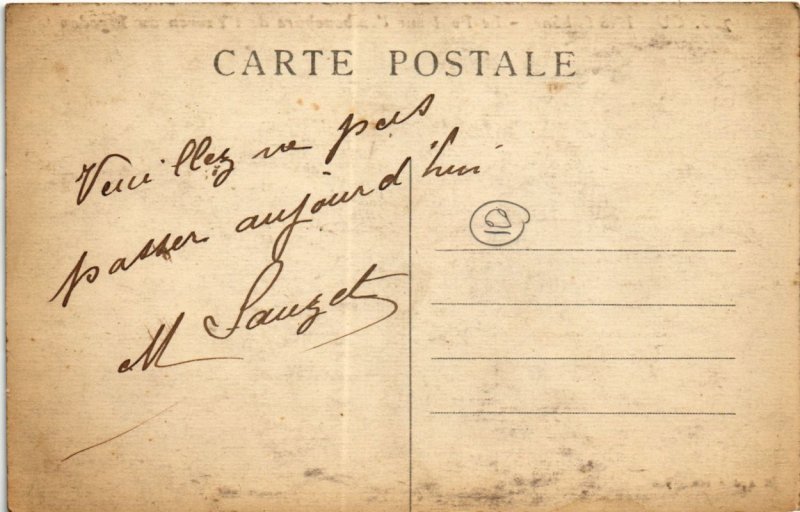 CARTE POSTALE
Veuillez ne pas
passer aujourd'hui
M Sauzet